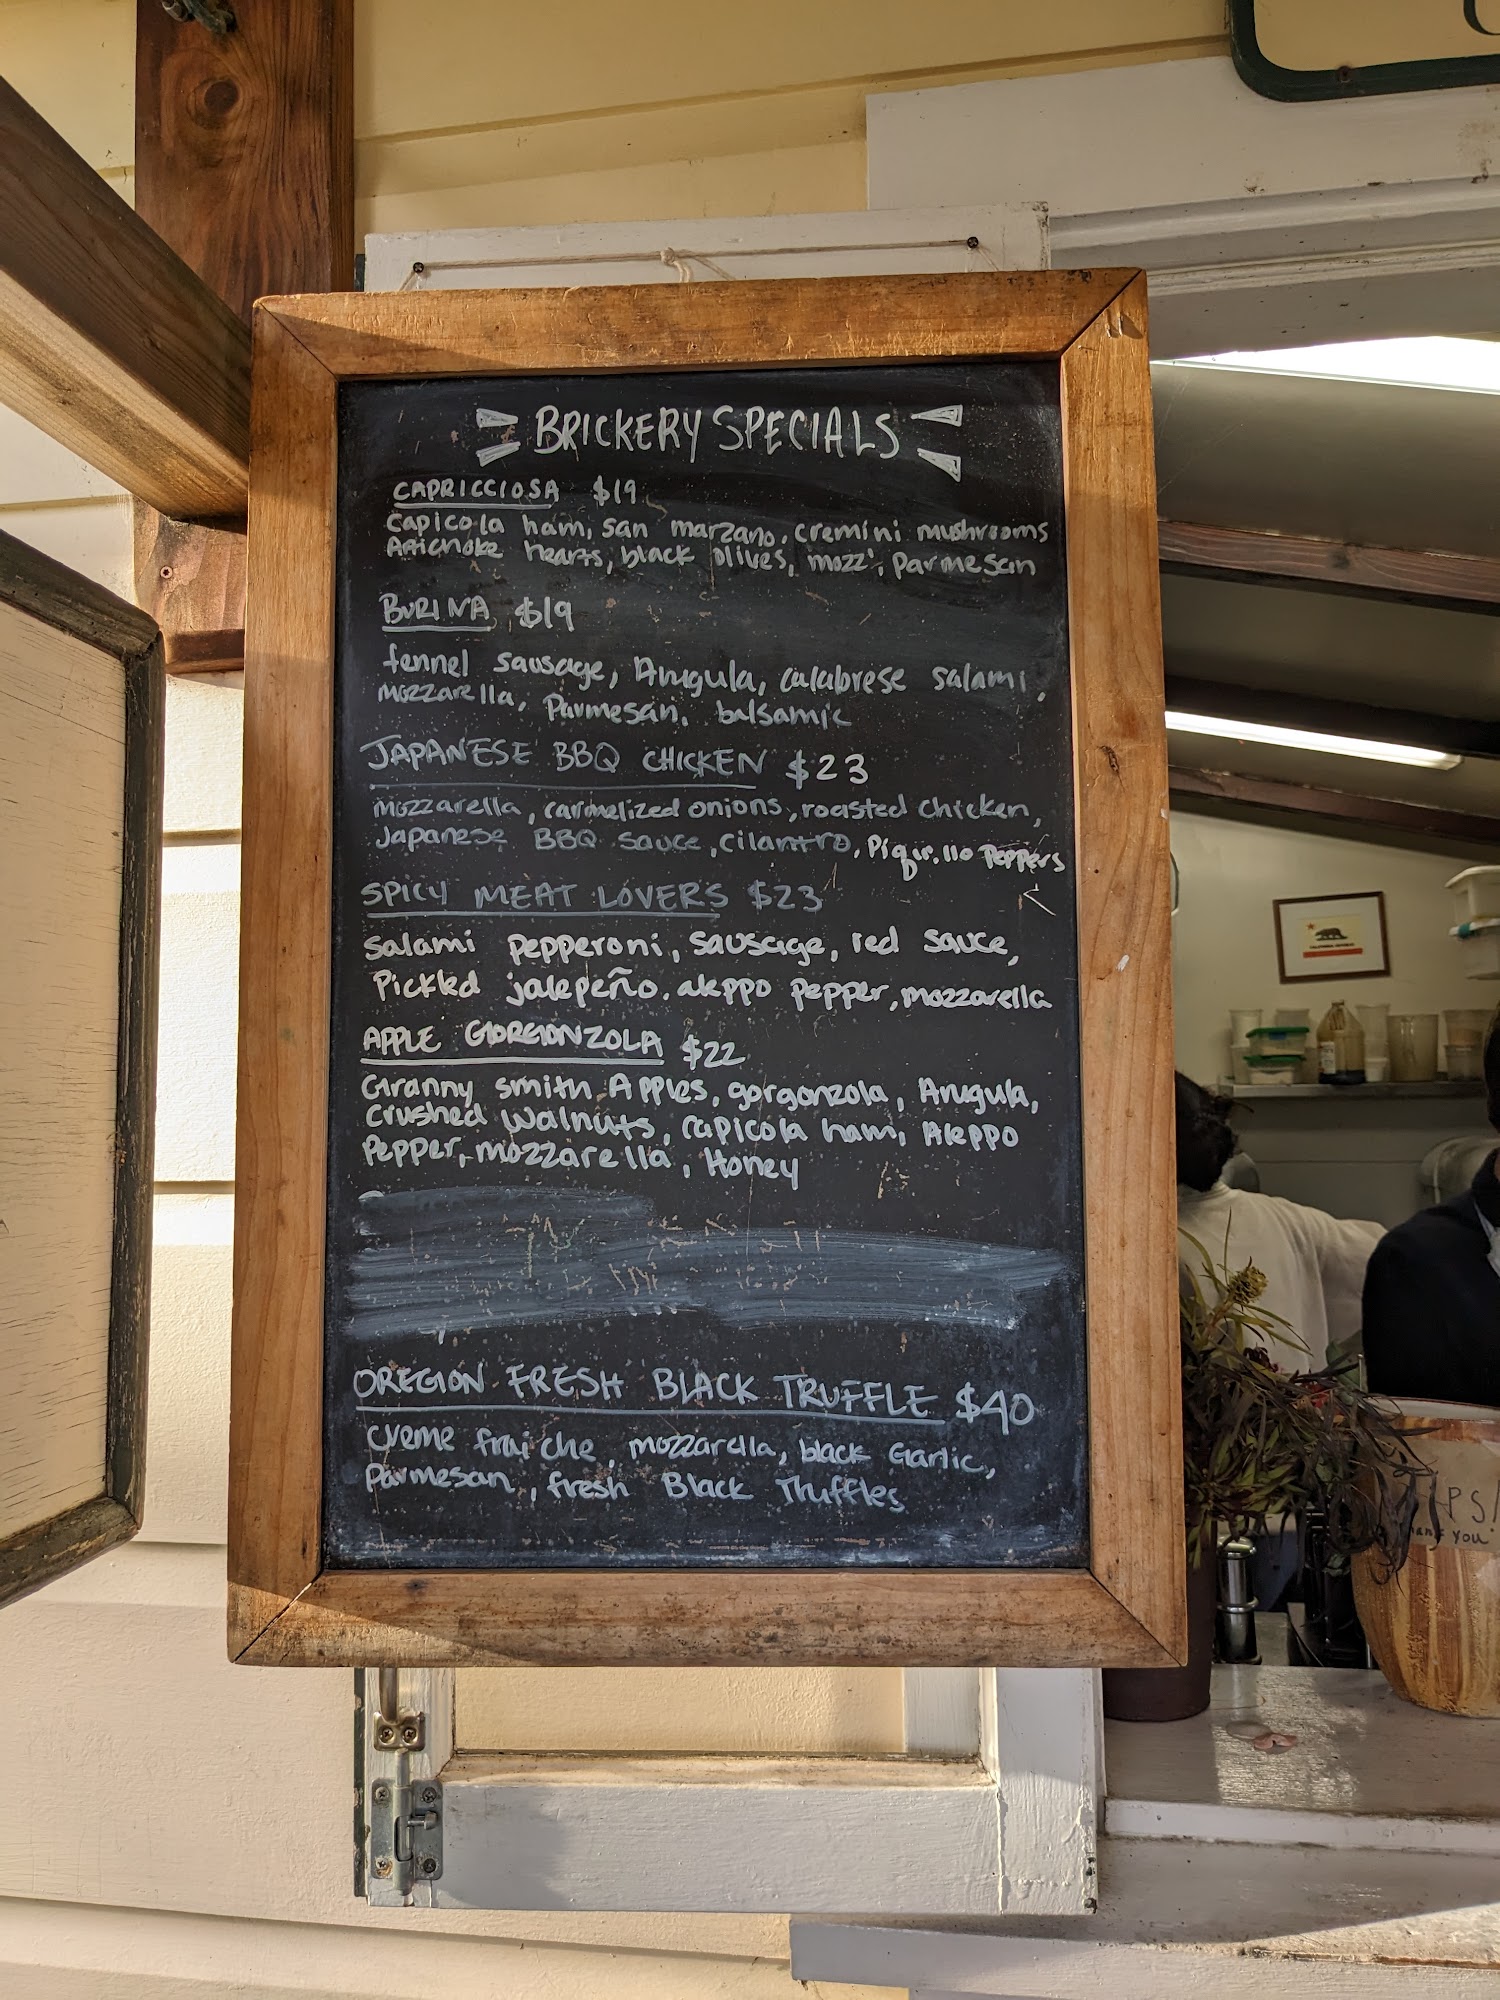 BRICKERY SPECIALS
CAPRICCIOSA $19
Capicola ham, san marzano, cremini mushrooms
Artichoke hearts, black olives, mozz', Parmesan
BURINA $19
fennel sausage, Arugula, calabrese salami,
mozzarella, Parmesan, balsamic
JAPANESE BBQ CHICKEN $23
mozzarella, carmelized onions, roasted chicken,
Japanese BBQ sauce, cilantro, Piquillo Peppers
SPICY MEAT LOVERS $23
Salami Pepperoni, Sausage, red Sauce,
Pickled jalepeño, aleppo pepper, mozzarella
APPLE GORGONZOLA $22
Granny smith Apples, gorgonzola, Arugula,
crushed Walnuts, capicola ham, Aleppo
Pepper, mozzarella, Honey
OREGON FRESH BLACK TRUFFLE $40
creme fraiche, mozzarella, black Garlic,
Parmesan, fresh Black Truffles
CALIFORNIA REPUBLIC
TIPS!
Thank you